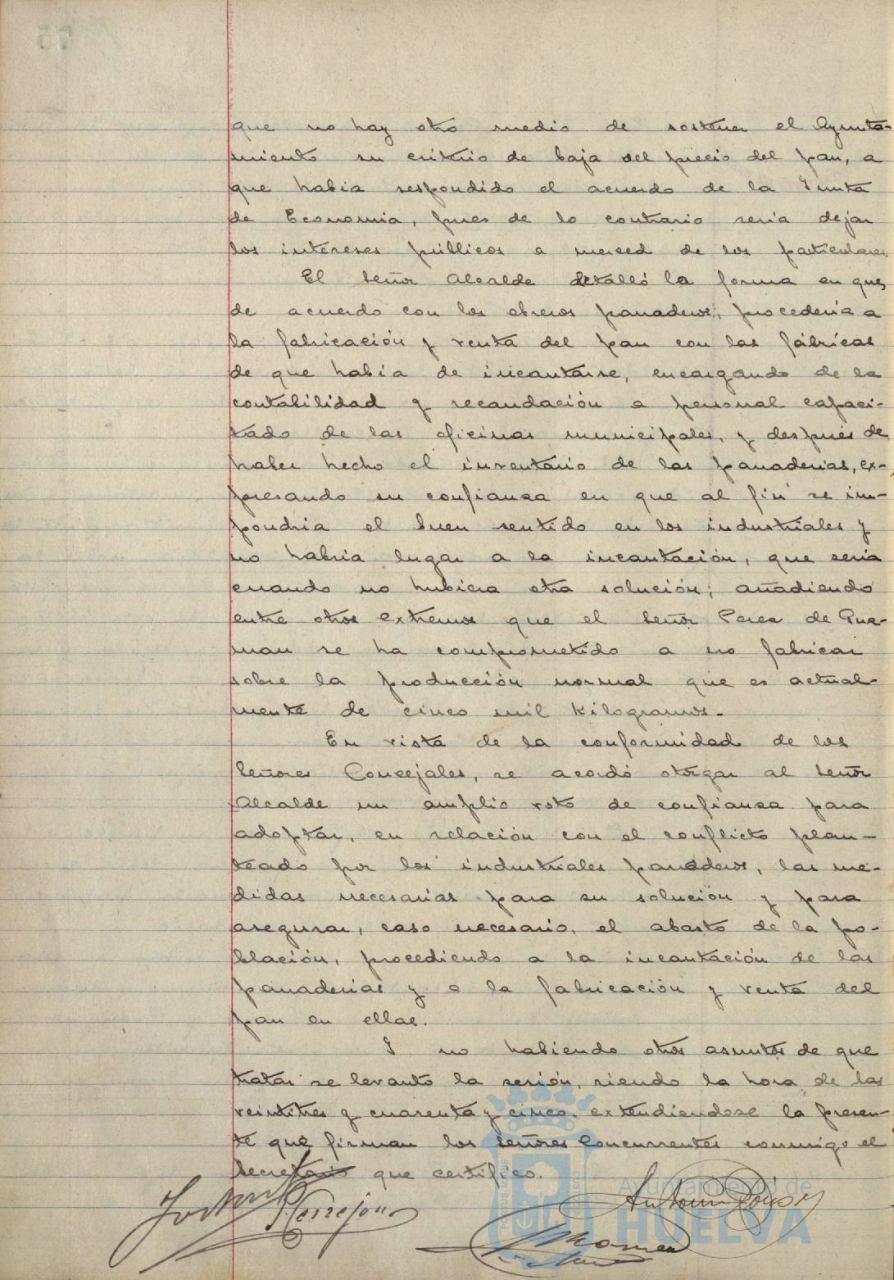 que no hay otro medio de sostener el Ayunta-
miento su criterio de baja del precio del pan, a
que habia respondido el acuerdo de la Junta
de Economia, pues de lo contrario seria dejar
los intereses públicos a merced de los particulares.
El Señor Alcalde detalló la forma en que,
de acuerdo con los obreros panaderos, procederia a
la fabricación y venta del pan con las fábricas
de que habia de incautarse, encargando de la
contabilidad y recaudación a personal capaci-
tado de las oficinas municipales, y después de
haber hecho el inventario de las panaderias, ex-
presando su confianza en que al fin se im-
pondria el buen sentido en los industriales y
no habria lugar a la incautación, que seria
cuando no hubiera otra solución; añadiendo
entre otros extremos que el Señor Perez de Guz-
man se ha comprometido a no fabricar
sobre la producción normal que es actual-
mente de cinco mil Kilogramos.
En vista de la conformidad de los
Señores Concejales, se acordó otorgar al Señor
Alcalde un amplio voto de confianza para
adoptar, en relación con el conflicto plan-
teado por los industriales panaderos, las me-
didas necesarias para su solución y para
asegurar, caso necesario, el abasto de la po-
blación, procediendo a la incautación de las
panaderias y a la fabricación y venta del
pan en ellas.
Y no habiendo otros asuntos de que
tratar se levanto la sesión, siendo la hora de las
veintitres y cuarenta y cinco, extendiendose la presen-
te que firman los señores concurrentes conmigo el
Secretario que certifico.
Terrejon
Ayuntamiento de
HUELVA